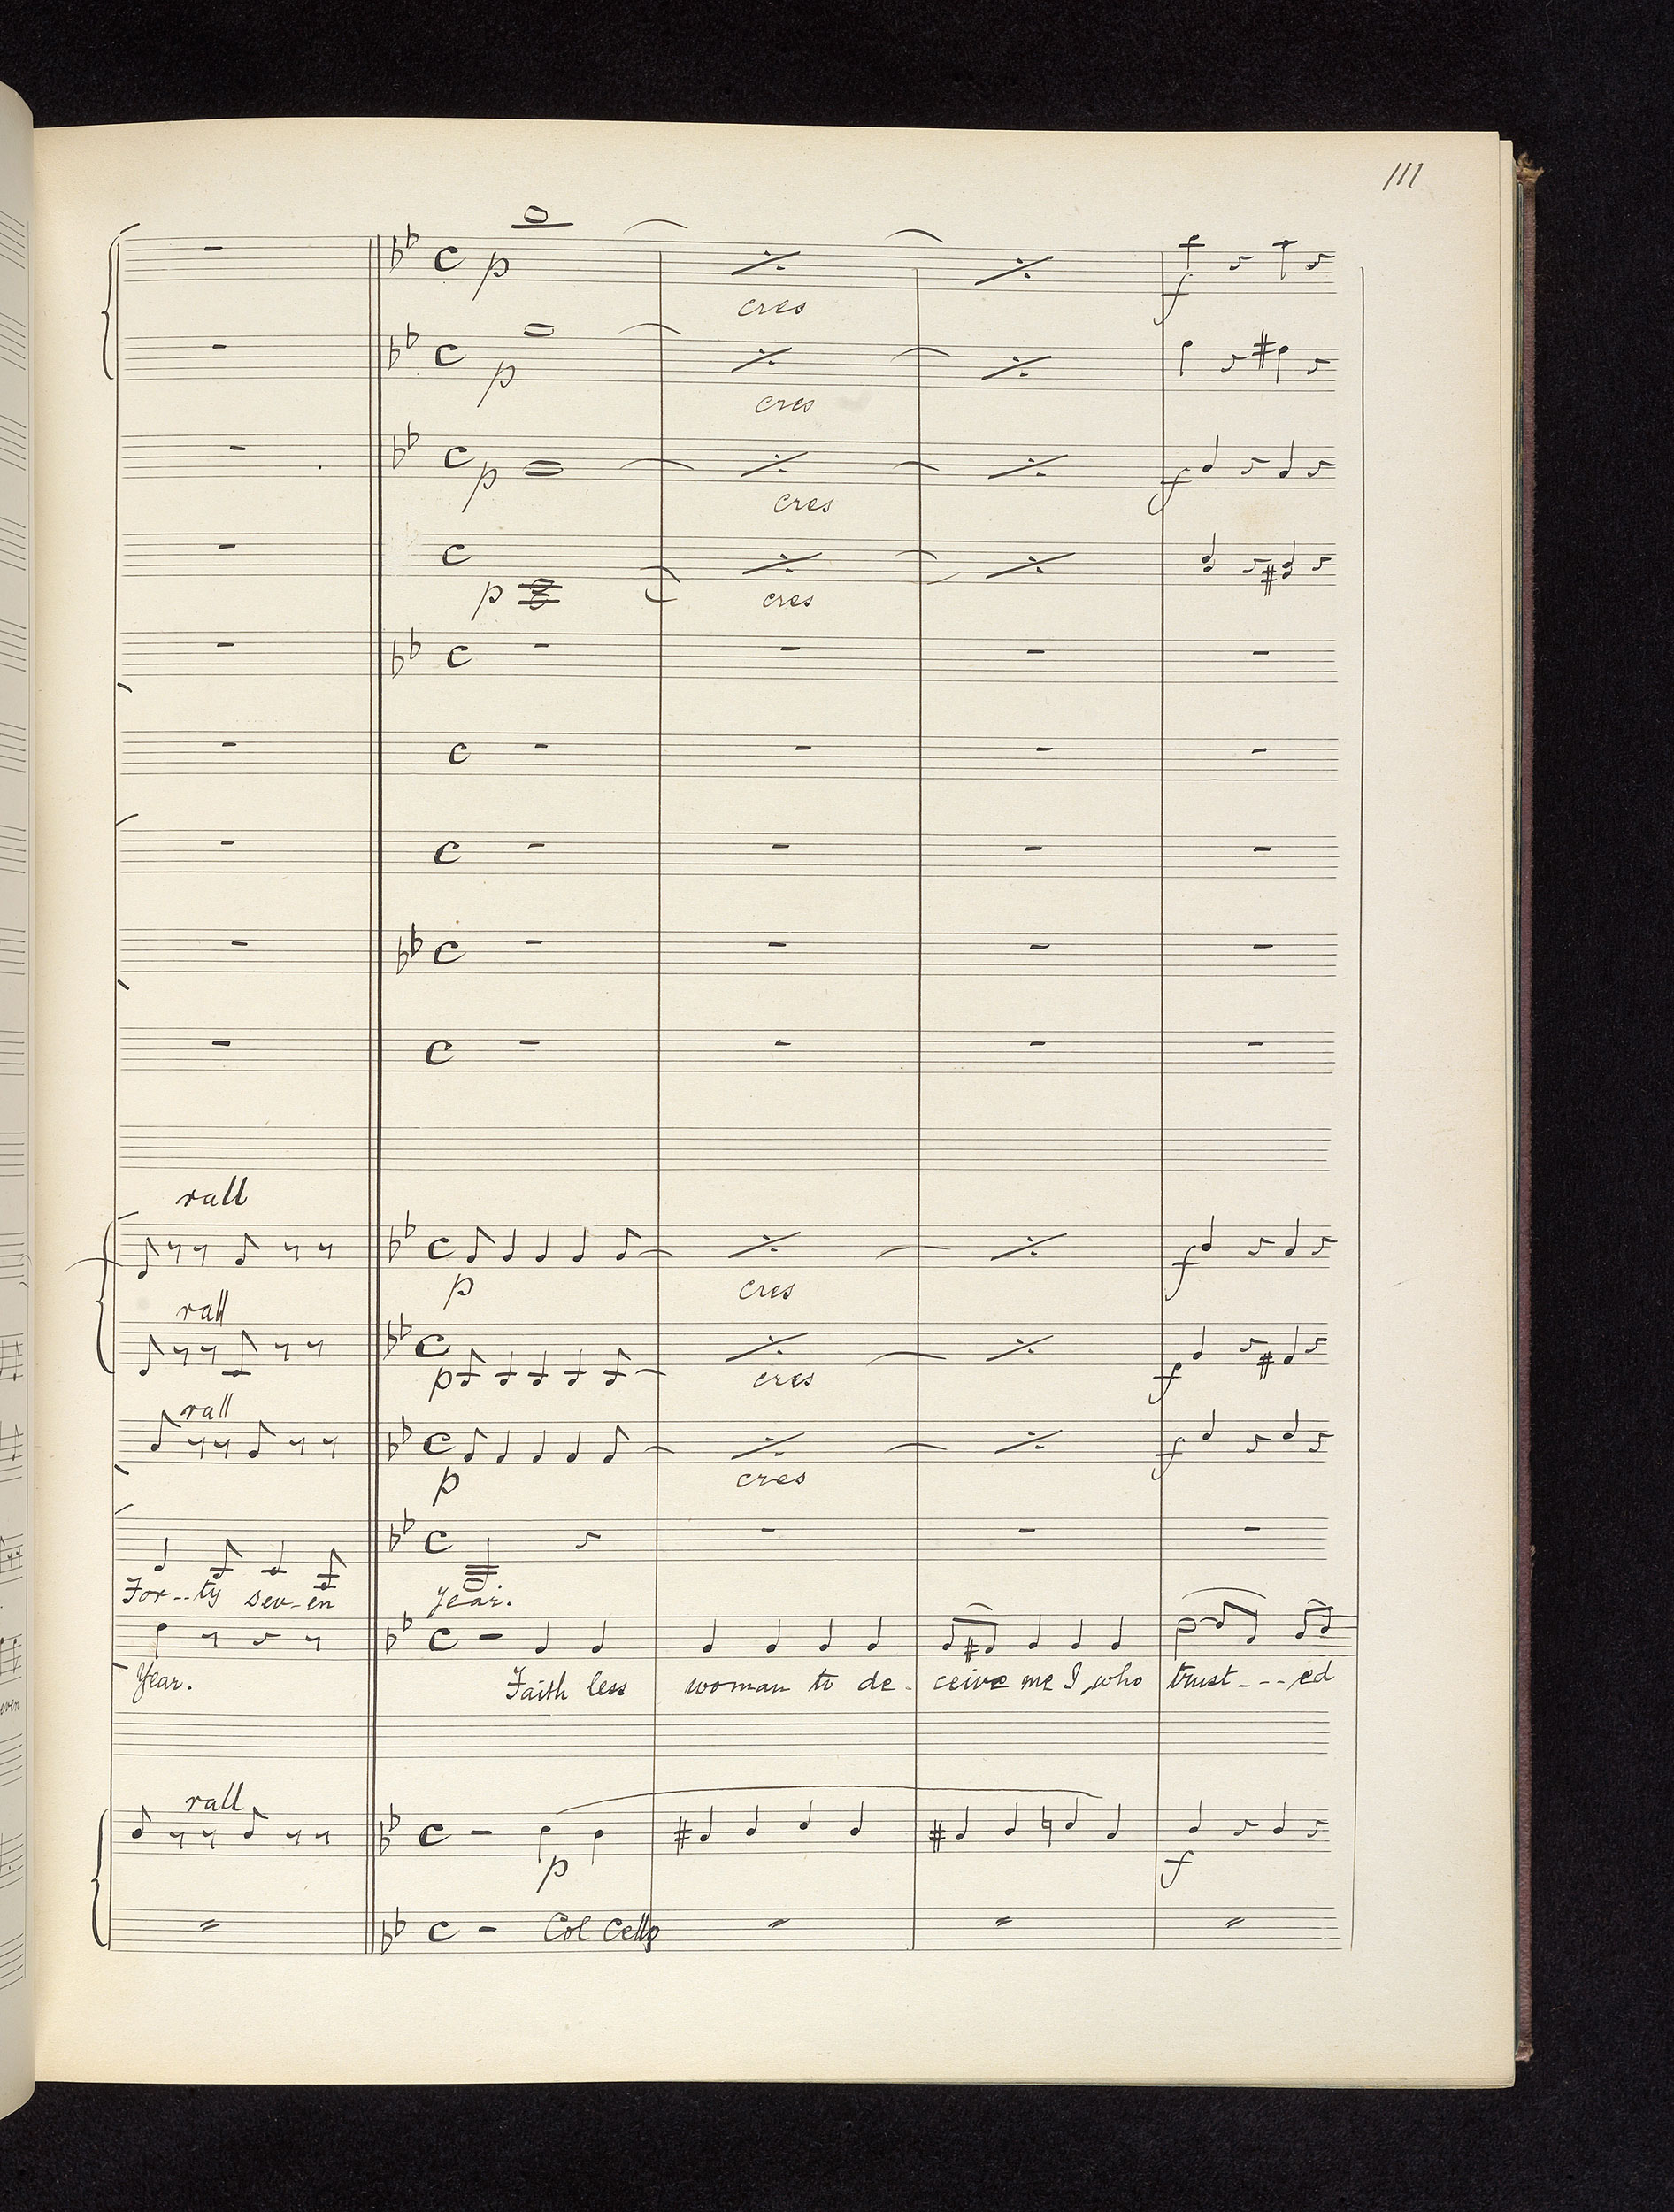 111
p
cres
f
p
cres
p
cres
f
p
cres
rall
p
cres
f
rall
p
cres
f
rall
p
cres
f
For--ty sev-en year.
Year. Faith less woman to de- ceive me I who trust---ed
rall
p
f
Col Cello